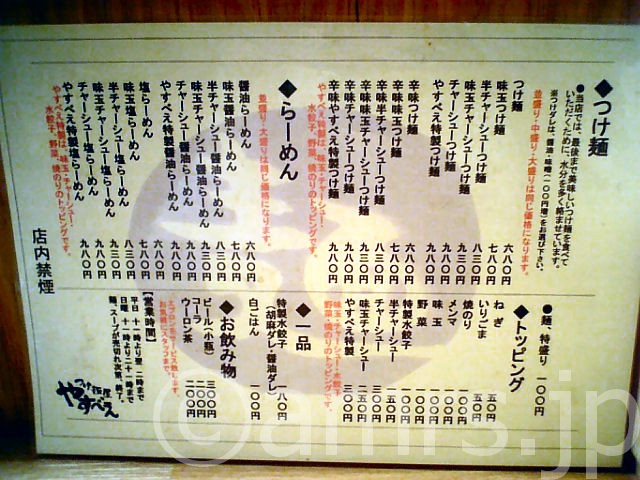 ◆つけ麺
●当店では、最後まで美味しいつけ麺を食べて
いただくために、水分を多く絡ませています。
※つけダレは、醤油・味噌(一〇〇円増)をお選び下さい。
並盛り・中盛り・大盛りは同じ価格になります。
つけ麺 六八〇円
味玉つけ麺 七八〇円
半チャーシューつけ麺 八三〇円
味玉チャーシューつけ麺
チャーシューつけ麺
やすべえ特製つけ麺 九八〇円
辛味つけ麺
辛味味玉つけ麺
辛味半チャーシューつけ麺
辛味味玉チャーシューつけ麺
辛味チャーシューつけ麺
辛味やすべえ特製つけ麺 九八〇円
やすべえ特製は、味玉・チャーシュー・
水餃子、野菜、焼のりのトッピングです。
◆らーめん
並盛り・大盛りは同じ価格になります。
醤油らーめん 六八〇円
味玉醤油らーめん 七八〇円
半チャーシュー醤油らーめん 八三〇円
味玉チャーシュー醤油らーめん
チャーシュー醤油らーめん
やすべえ特製醤油らーめん 九八〇円
塩らーめん 六八〇円
味玉塩らーめん 七八〇円
半チャーシュー塩らーめん
味玉チャーシュー塩らーめん
チャーシュー塩らーめん
やすべえ特製塩らーめん 九八〇円
やすべえ特製は、味玉・チャーシュー・
水餃子、野菜、焼のりのトッピングです。
店内禁煙
●麺、特盛り 一〇〇円
◆トッピング
ねぎ 五〇円
いりごま 五〇円
焼のり 一〇〇円
メンマ 一〇〇円
味玉 一〇〇円
野菜 一〇〇円
特製水餃子
半チャーシュー
チャーシュー
味玉チャーシュー
やすべえ特製 三〇〇円
味玉・チャーシュー・水餃子
野菜・焼のりのトッピングです。
◆一品
特製水餃子 一八〇円
(胡麻ダレ・醤油ダレ)
白ごはん 一〇〇円
◆お飲み物
ビール(小瓶) 三〇〇円
コーラ 二〇〇円
ウーロン茶 一〇〇円
エプロンをサービス致します。
お気軽にスタッフまで。
【営業時間】
平日 十一時より翌二時まで
日曜 十一時より二十一時まで
麺、スープが売切れ次第、終了。
つけ麺屋
やすべえ
©amrs.jp